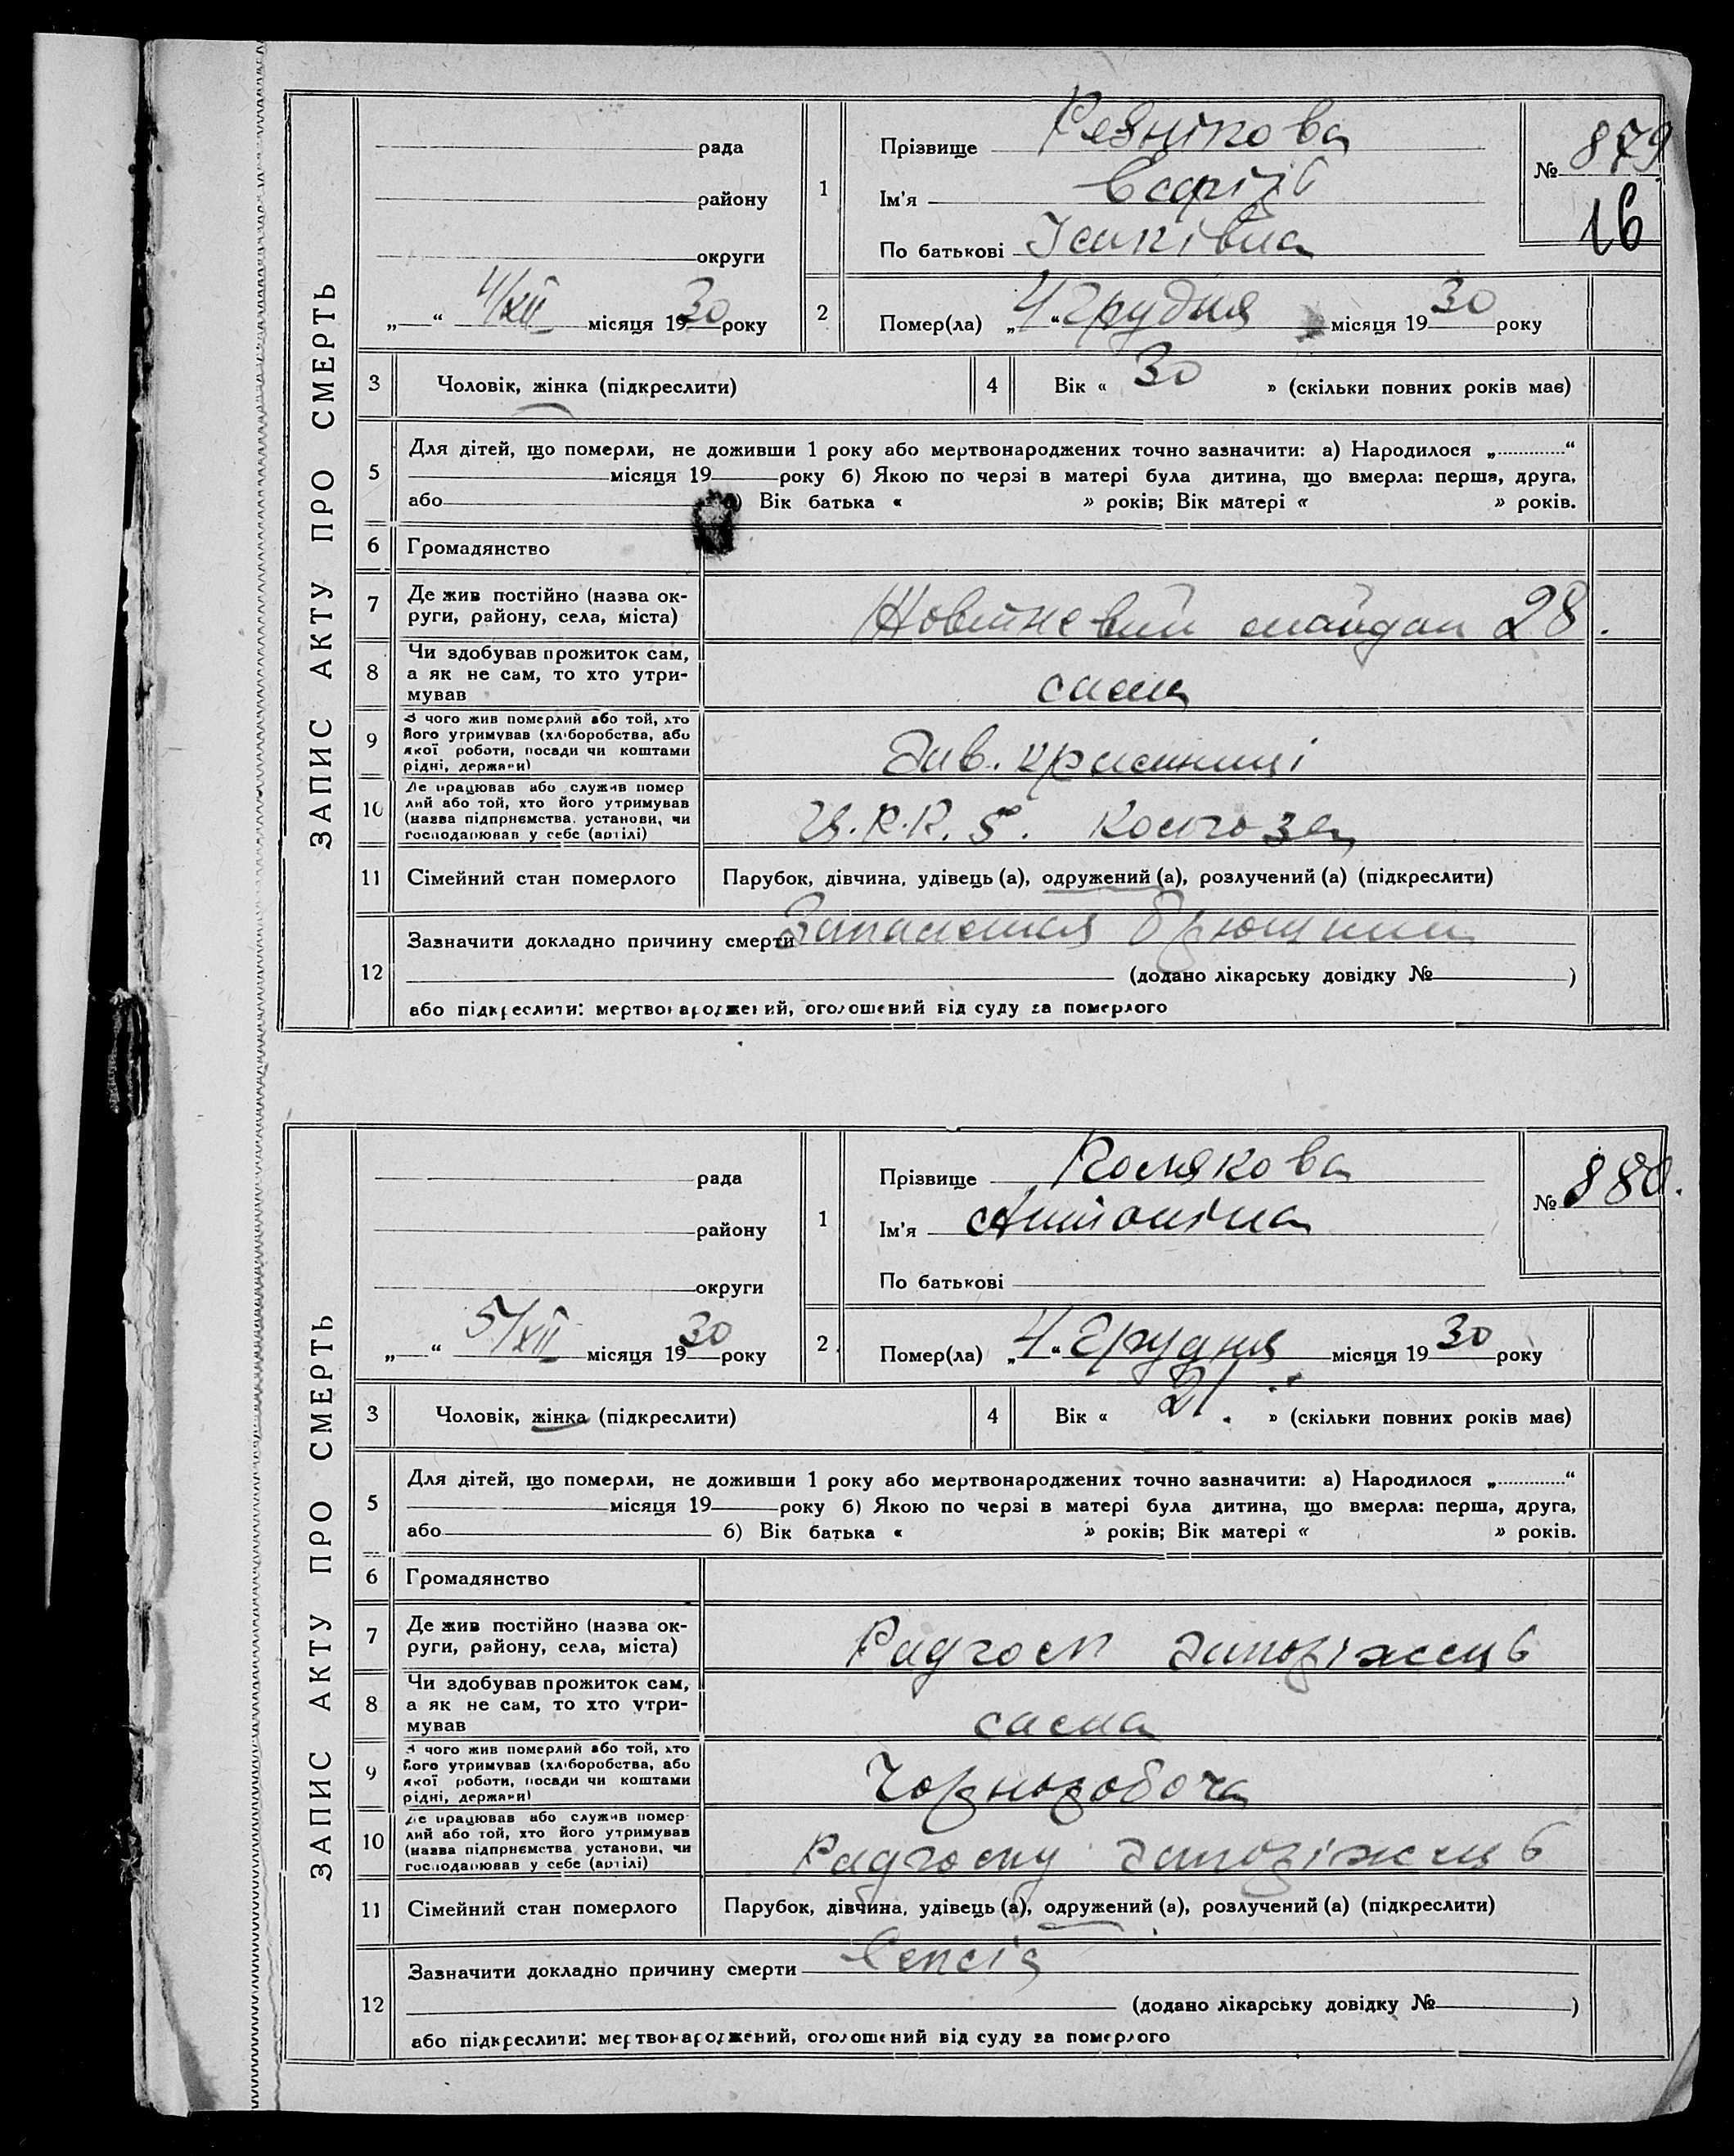 ЗАПИС АКТУ ПРО СМЕРТЬ
рада
району
округи
„ “ 4/XII місяця 1930 року
1
Прізвище Резнікова
Ім'я
По батькові Ісаківна
№ 879
16
2
Помер(ла) „4“ Грудня місяця 1930 року
3
Чоловік, жінка (підкреслити)
4
Вік « 30 » (скільки повних років має)
5
Для дітей, що померли, не доживши 1 року або мертвонароджених точно зазначити: а) Народилося „............“
місяця 19 року б) Якою по черзі в матері була дитина, що вмерла: перша, друга,
або ) Вік батька « » років; Вік матері « » років.
6
Громадянство
7
Де жив постійно (назва ок-
руги, району, села, міста)
Жовтневий майдан 28.
8
Чи здобував прожиток сам,
а як не сам, то хто утри-
мував
сама
9
З чого жив померлий або той, хто
його утримував (хліборобства, або
якої роботи, посади чи коштами
рідні, держави)
Зав. крамниці
10
Де працював або служив помер
лий або той, хто його утримував
(назва підприємства, установи, чи
господарював у себе (артілі)
11
Сімейний стан померлого
Парубок, дівчина, удівець (а), одружений (а), розлучений (а) (підкреслити)
12
Зазначити докладно причину смерти Запалення брюшини
(додано лікарську довідку № )
або підкреслити: мертвонароджений, оголошений від суду за померлого
ЗАПИС АКТУ ПРО СМЕРТЬ
рада
району
округи
„ “ 5/XII місяця 1930 року
1
Прізвище Колякова
Ім'я Антоніна
По батькові
№ 880.
2
Помер(ла) „4“ Грудня місяця 1930 року
3
Чоловік, жінка (підкреслити)
4
Вік « 21. » (скільки повних років має)
5
Для дітей, що померли, не доживши 1 року або мертвонароджених точно зазначити: а) Народилося „............“
місяця 19 року б) Якою по черзі в матері була дитина, що вмерла: перша, друга,
або б) Вік батька « » років; Вік матері « » років.
6
Громадянство
7
Де жив постійно (назва ок-
руги, району, села, міста)
Радгосп Запоріжець
8
Чи здобував прожиток сам,
а як не сам, то хто утри-
мував
сама
9
З чого жив померлий або той, хто
його утримував (хліборобства, або
якої роботи, посади чи коштами
рідні, держави)
Чорноробота
10
Де працював або служив помер-
лий або той, хто його утримував
(назва підприємства, установи, чи
господарював у себе (артілі)
Радгоспу Запоріжець
11
Сімейний стан померлого
Парубок, дівчина, удівець (а), одружений (а), розлучений (а) (підкреслити)
12
Зазначити докладно причину смерти Сепсіс
(додано лікарську довідку № )
або підкреслити: мертвонароджений, оголошений від суду за померлого